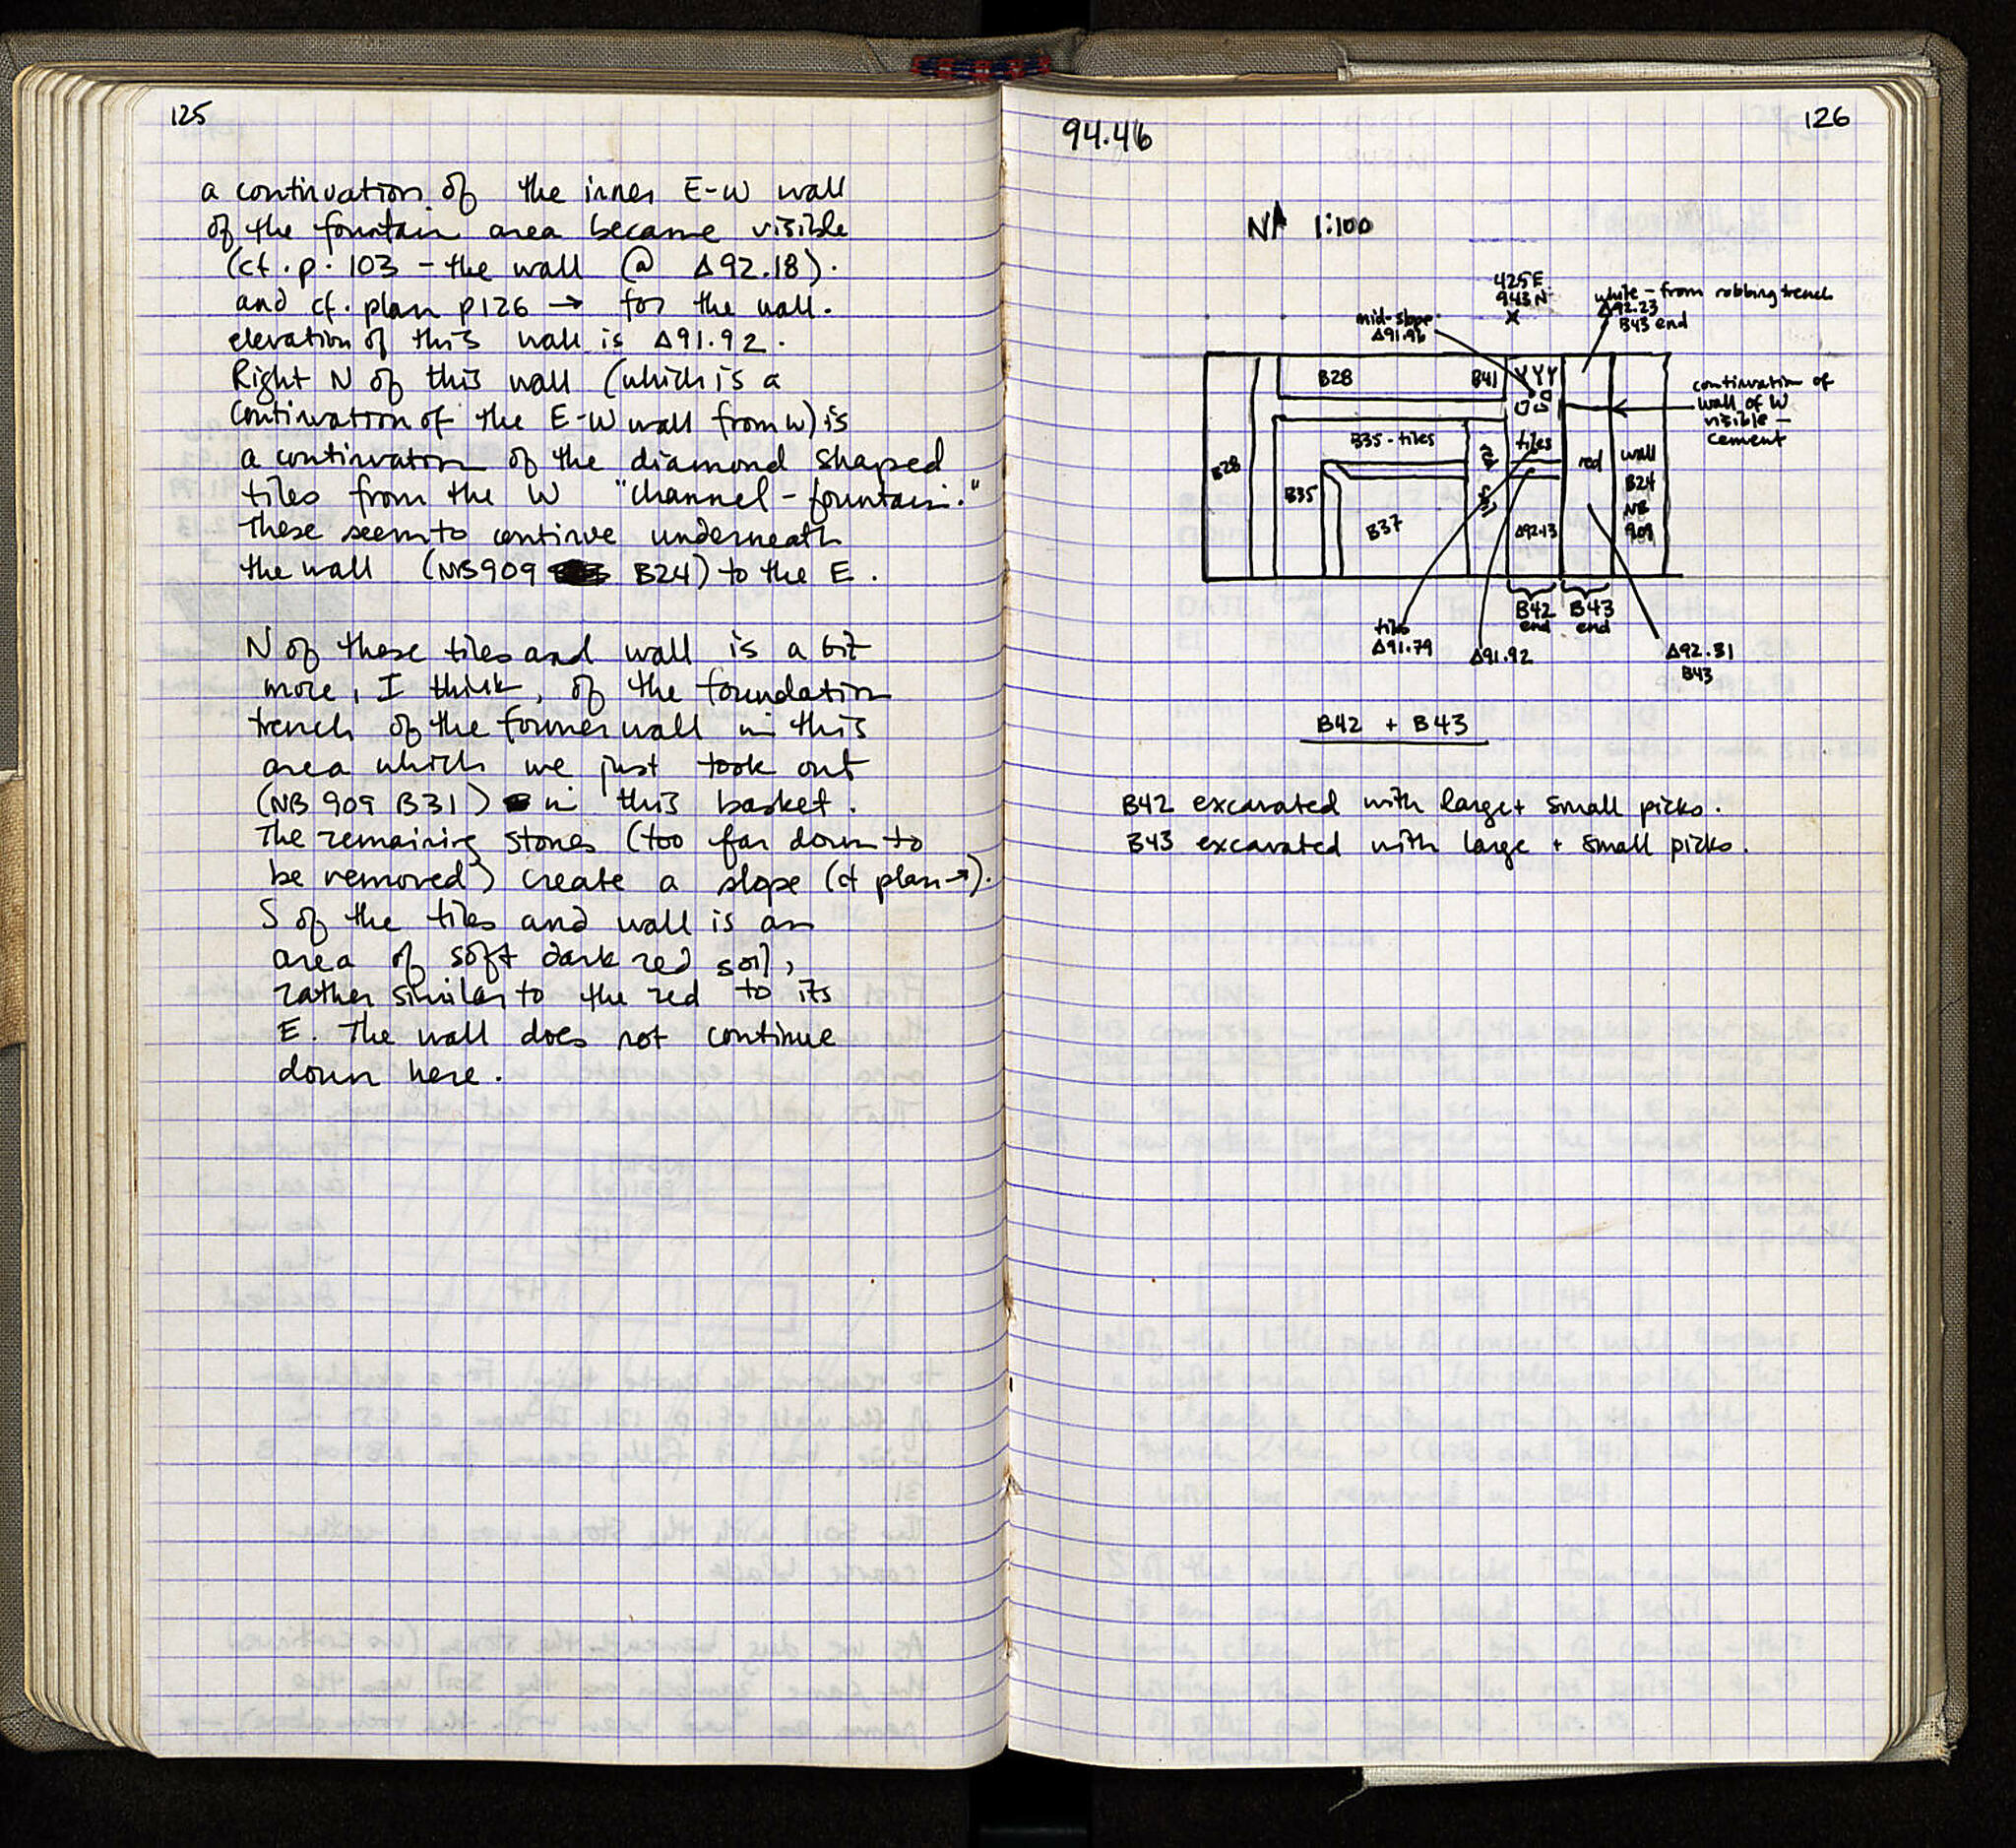 125
a continuation of the inner E-W wall
of the fountain area became visible
(cf. p. 103 - the wall @ Δ92.18).
and cf. plan p126 → for the wall.
elevation of this wall is Δ91.92.
Right N of this wall (which is a
continuation of the E-W wall from W) is
a continuation of the diamond shaped
tiles from the W "channel-fountain."
These seem to continue underneath
the wall (NB909 B24) to the E.
N of these tiles and wall is a bit
more, I think, of the foundation
trench of the former wall in this
area which we just took out
(NB 909 B31) in this basket.
The remaining stones (too far down to
be removed) create a slope (cf plan→).
S of the tiles and wall is an
area of soft dark red soil,
rather similar to the red to its
E. The wall does not continue
down here.
126
94.46
N 1:100
425E
943N
X
white - from robbing trench
Δ92.23
B43 end
mid-slope
Δ91.96
B28
B41
YYY
continuation of
wall of W
visible -
cement
B35-tiles
tiles
B28
red
wall
B24
NB
909
B35
B37
Δ92.13
B42
end
B43
end
tiles
Δ91.79
Δ91.92
Δ92.31
B43
B42 + B43
B42 excavated with large + small picks.
B43 excavated with large + small picks.